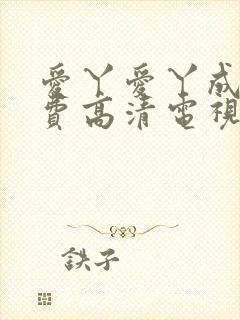 愛丫愛丫成
費高清電視
鉄子